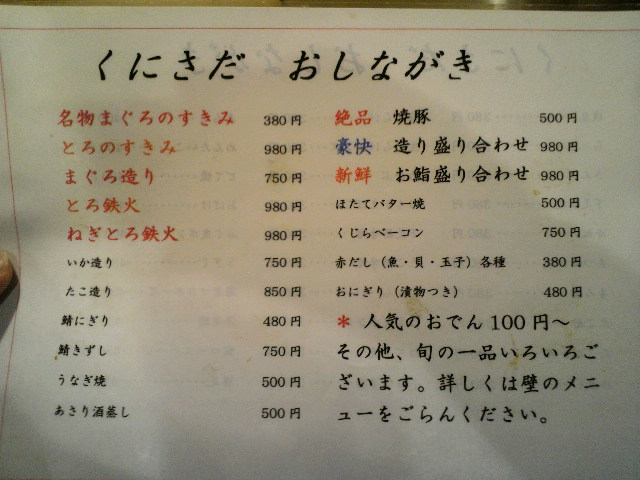 くにさだ おしながき
名物まぐろのすきみ 380円
とろのすきみ 980円
まぐろ造り 750円
とろ鉄火 980円
ねぎとろ鉄火 980円
いか造り 750円
たこ造り 850円
鯖にぎり 480円
鯖きずし 750円
うなぎ焼 500円
あさり酒蒸し 500円
絶品 焼豚 500円
豪快 造り盛り合わせ 980円
新鮮 お鮨盛り合わせ 980円
ほたてバター焼 500円
くじらベーコン 750円
赤だし（魚・貝・玉子）各種 380円
おにぎり（漬物つき） 480円
* 人気のおでん100円～
その他、旬の一品いろいろご
ざいます。詳しくは壁のメニ
ューをごらんください。